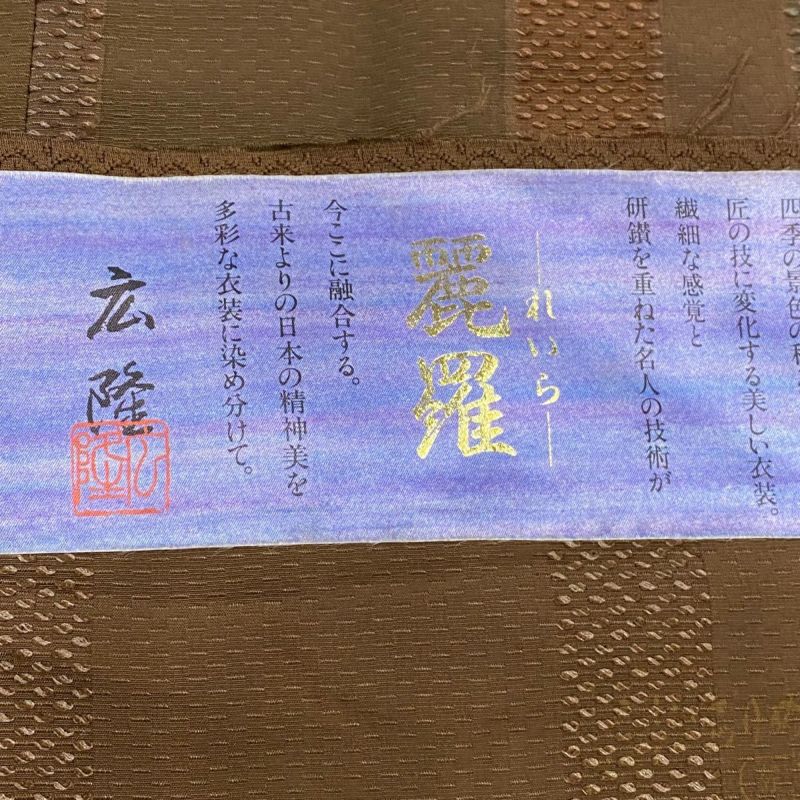 四季の景色の
匠の技に変化する美しい衣装。
繊細な感覚と
研鑽を重ねた名人の技術が
―れいら―
麗羅
今ここに融合する。
古来よりの日本の精神美を
多彩な衣装に染め分けて。
広隆